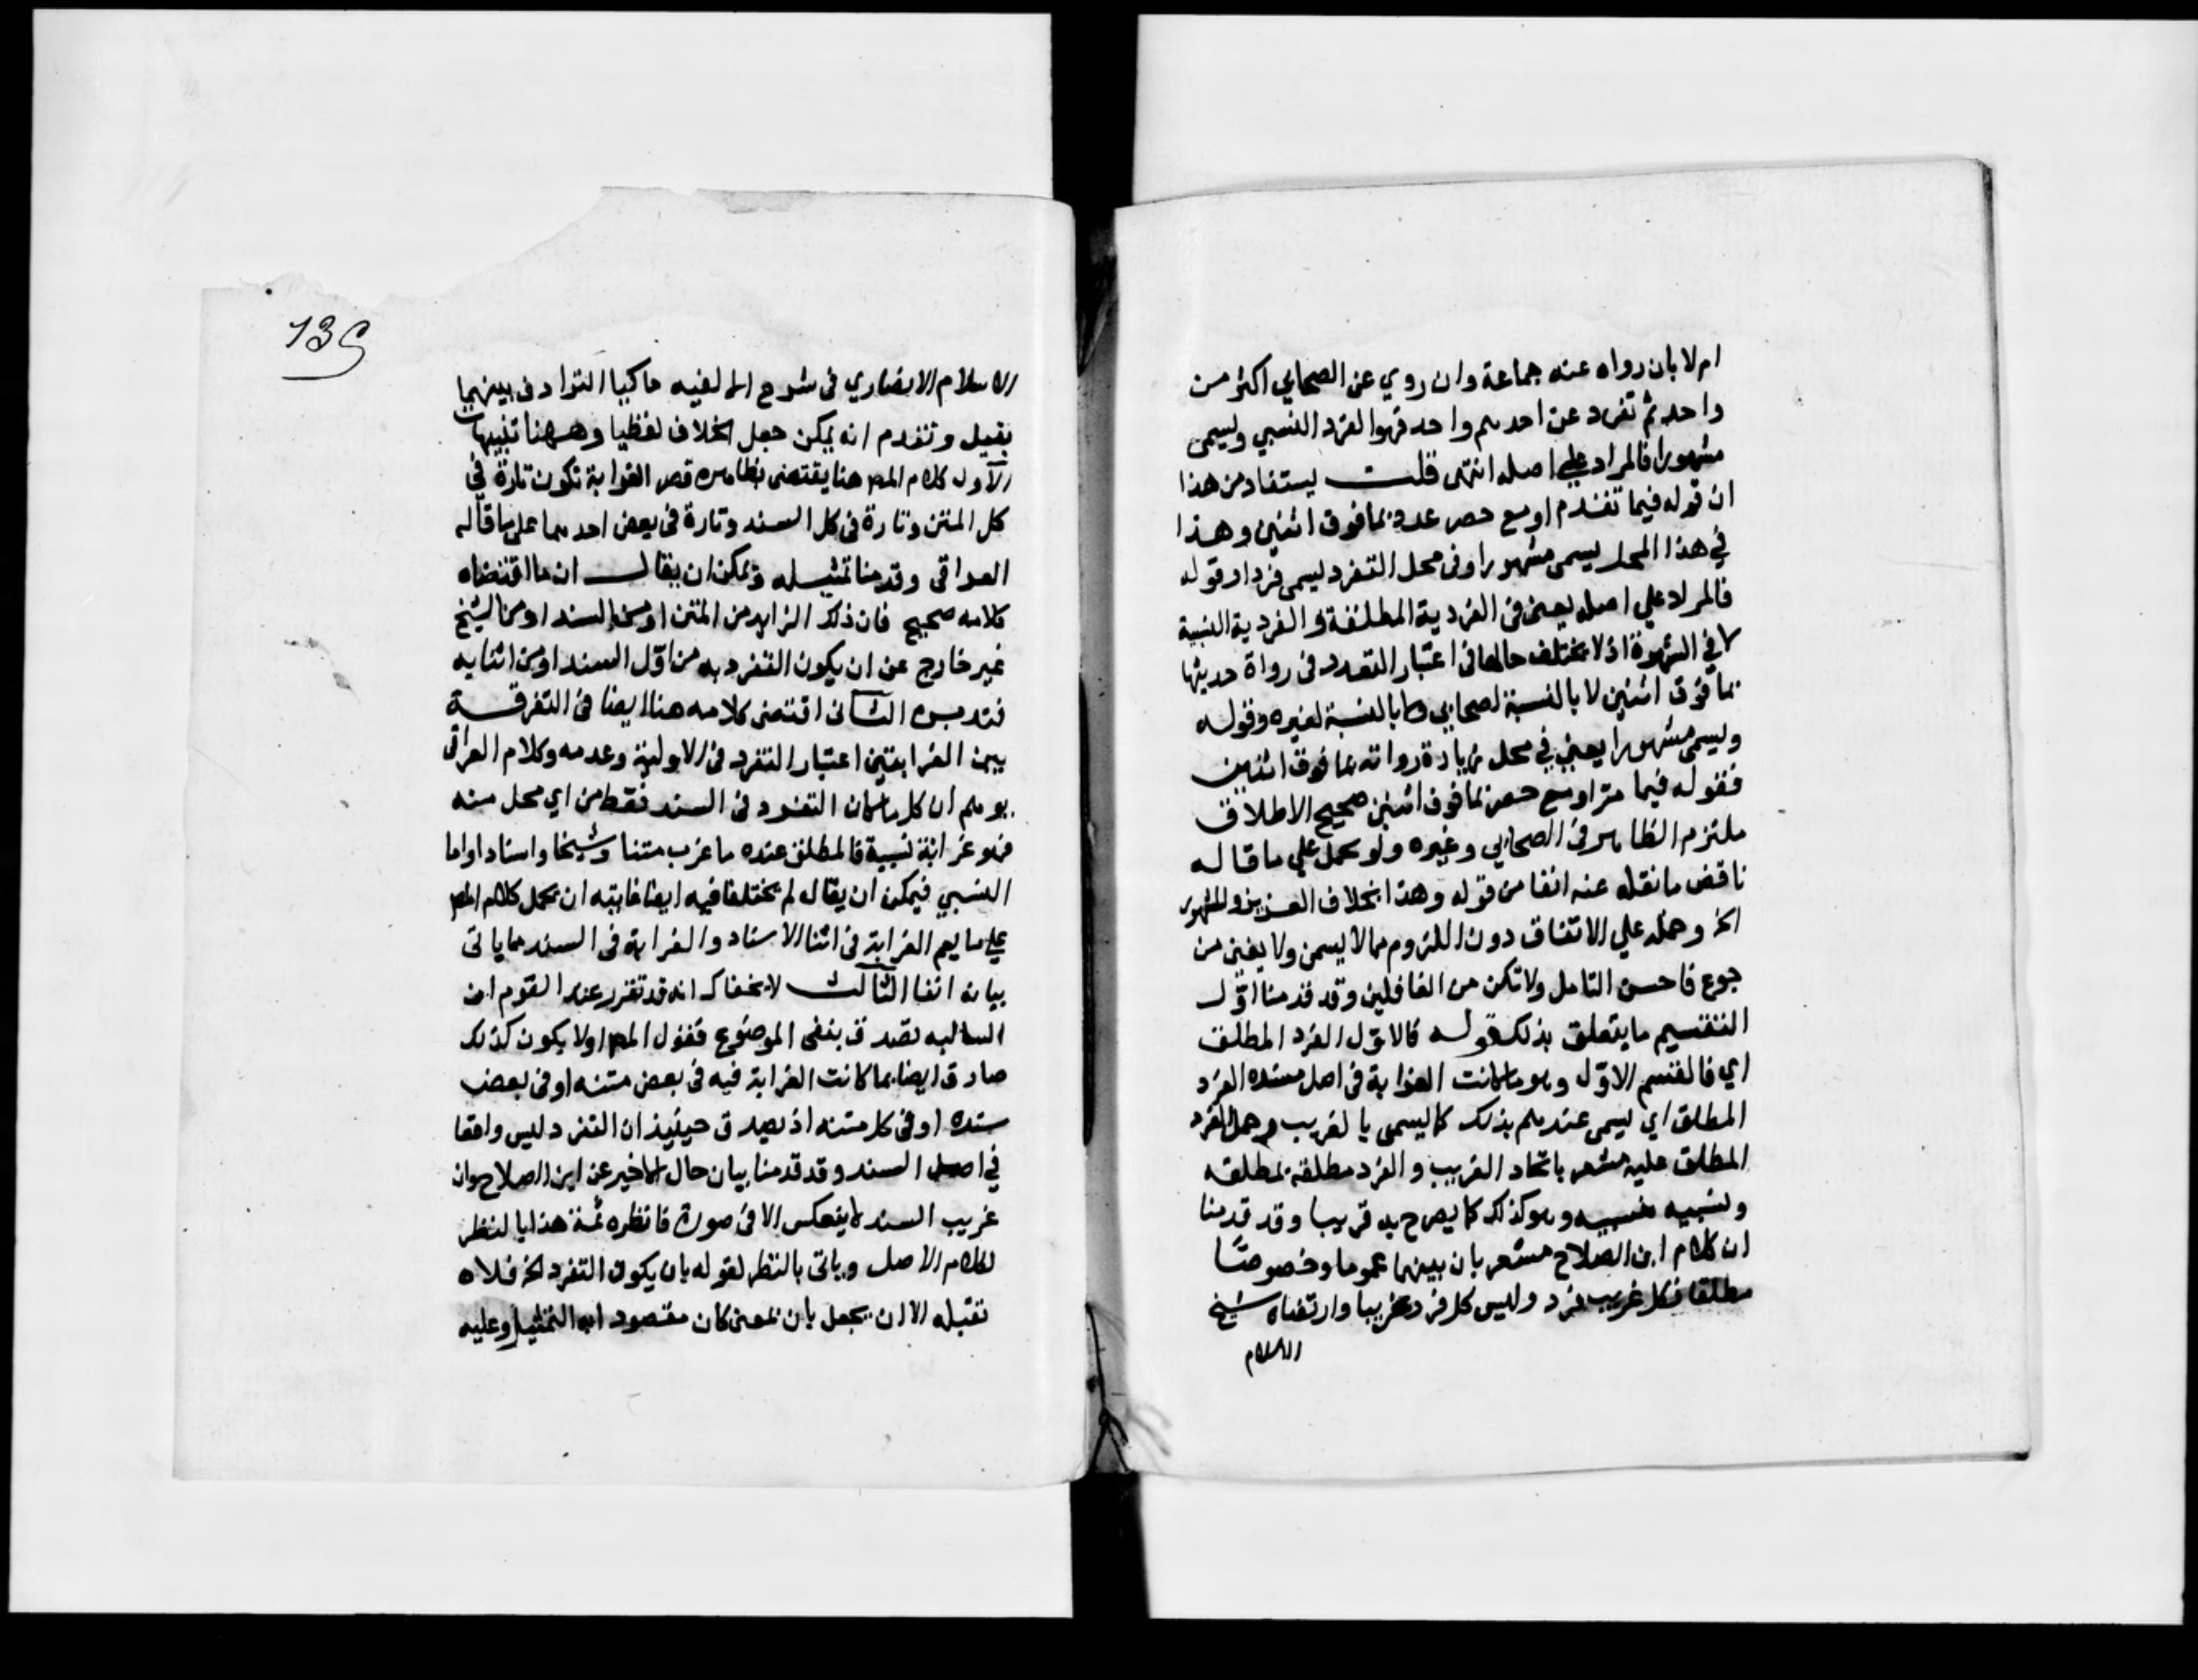 ام لا بان رواه عنه جماعة وان روي عن الصحابي اكثر من
واحد ثم تفرد عن احدهم واحد فهو الفرد النسبي ويسمى
مشهورا فالمراد على اصله انتهى قلت يستفاد من هذا
ان قوله فيما تقدم او مع حصر عدد بما فوق اثنين وهذا
في هذا المحل يسمى مشهورا وفى محل التفرد يسمى فردا وقوله
فالمراد علي اصله يعنى فى الفردية المطلقة والفردية النسبية
لا في الشهرة اذ لا يختلف حالها فى اعتبار التعدد فى رواة حديثها
بما فوق اثنين لا بالنسبة لصحابي ولا بالنسبة لغيره وقوله
ويسمى مشهورا يعني في محل زيادة رواته بما فوق اثنين
فقوله فيما مر او مع حصر بما فوق اثنين صحيح الاطلاق
ملتزم الظاهر فى الصحابي وغيره ولو حمل علي ما قاله
ناقض ما نقله عنه انفا من قوله وهذا بخلاف العزيز والمشهور
الخ وحمله علي الاتفاق دون اللزوم مما لا يسمن ولا يغنى من
جوع فاحسن التامل ولا تكن من الغافلين وقد قدمنا اول
التقسيم ما يتعلق بذلك قوله فالاول الفرد المطلق
اي فالقسم الاول وهو ما كانت الغرابة فى اصل سنده الفرد
المطلق اي يسمى عندهم بذلك كما يسمى بالغريب وحمل الفرد
المطلق عليه مشعر باتحاد الغريب والفرد مطلقه بمطلقه
ونسبيه بنسبيه وهو كذلك كما يصرح به قريبا وقد قدمنا
ان كلام ابن الصلاح مشعر بان بينهما عموما وخصوصا
مطلقا فكل غريب فرد وليس كل فرد غريبا وارتضاه شيخ
الاسلام
139
الاسلام الانصاري فى شرح الالفيه حاكيا الترادف بينهما
بقيل وتقدم انه يمكن جعل الخلاف لفظيا وههنا تنبيهات
الاول كلام المص هنا يقتضى بظاهره قصر الغرابة تكون تارة في
كل المتن وتارة فى كل السند وتارة فى بعض احدهما على ما قاله
العراقى وقدمنا تمثيله ويمكن ان يقال ان ما اقتضاه
كلامه صحيح فان ذلك الزايد من المتن او من السند او من الشيخ
غير خارج عن ان يكون التفرد به من اول السند او من اثنايه
فتدبره الثانى اقتضى كلامه هنا ايضا فى التفرقة
بين الغرابتين اعتبار التفرد فى الاولية وعدمه وكلام العراقى
يوهم ان كل ما كان التفرد فى السند فقط من اي محل منه
فهو غرابة نسبية فالمطلق عنده ما غرب متنا وشيخا واسنادا واما
النسبي فيمكن ان يقال لم يختلفا فيه ايضا غايته ان يحمل كلام المص
علي ما يعم الغرابة فى اثنا الاسناد والغرابة فى السند مما ياتى
بيانه انفا الثالث لا يخفاك انه قد تقرر عند القوم ان
السالبه تصدق بنفى الموضوع فقول المص اولا يكون كذلك
صادق ايضا بما كانت الغرابة فيه فى بعض متنه او فى بعض
سنده او فى كل متنه اذ يصدق حينيذ ان التفرد ليس واقعا
في اصل السند وقد قدمنا بيان حال الاخير عن ابن الصلاح وان
غريب السند لا ينعكس الا فى صورة فانظره ثمة هذا بالنظر
لكلام الاصل وياتى بالنظر لقوله بان يكون التفرد الخ فلاه
نقبله الا ان يجعل بان بمعنى كان مقصود ابه التمثيل وعليه